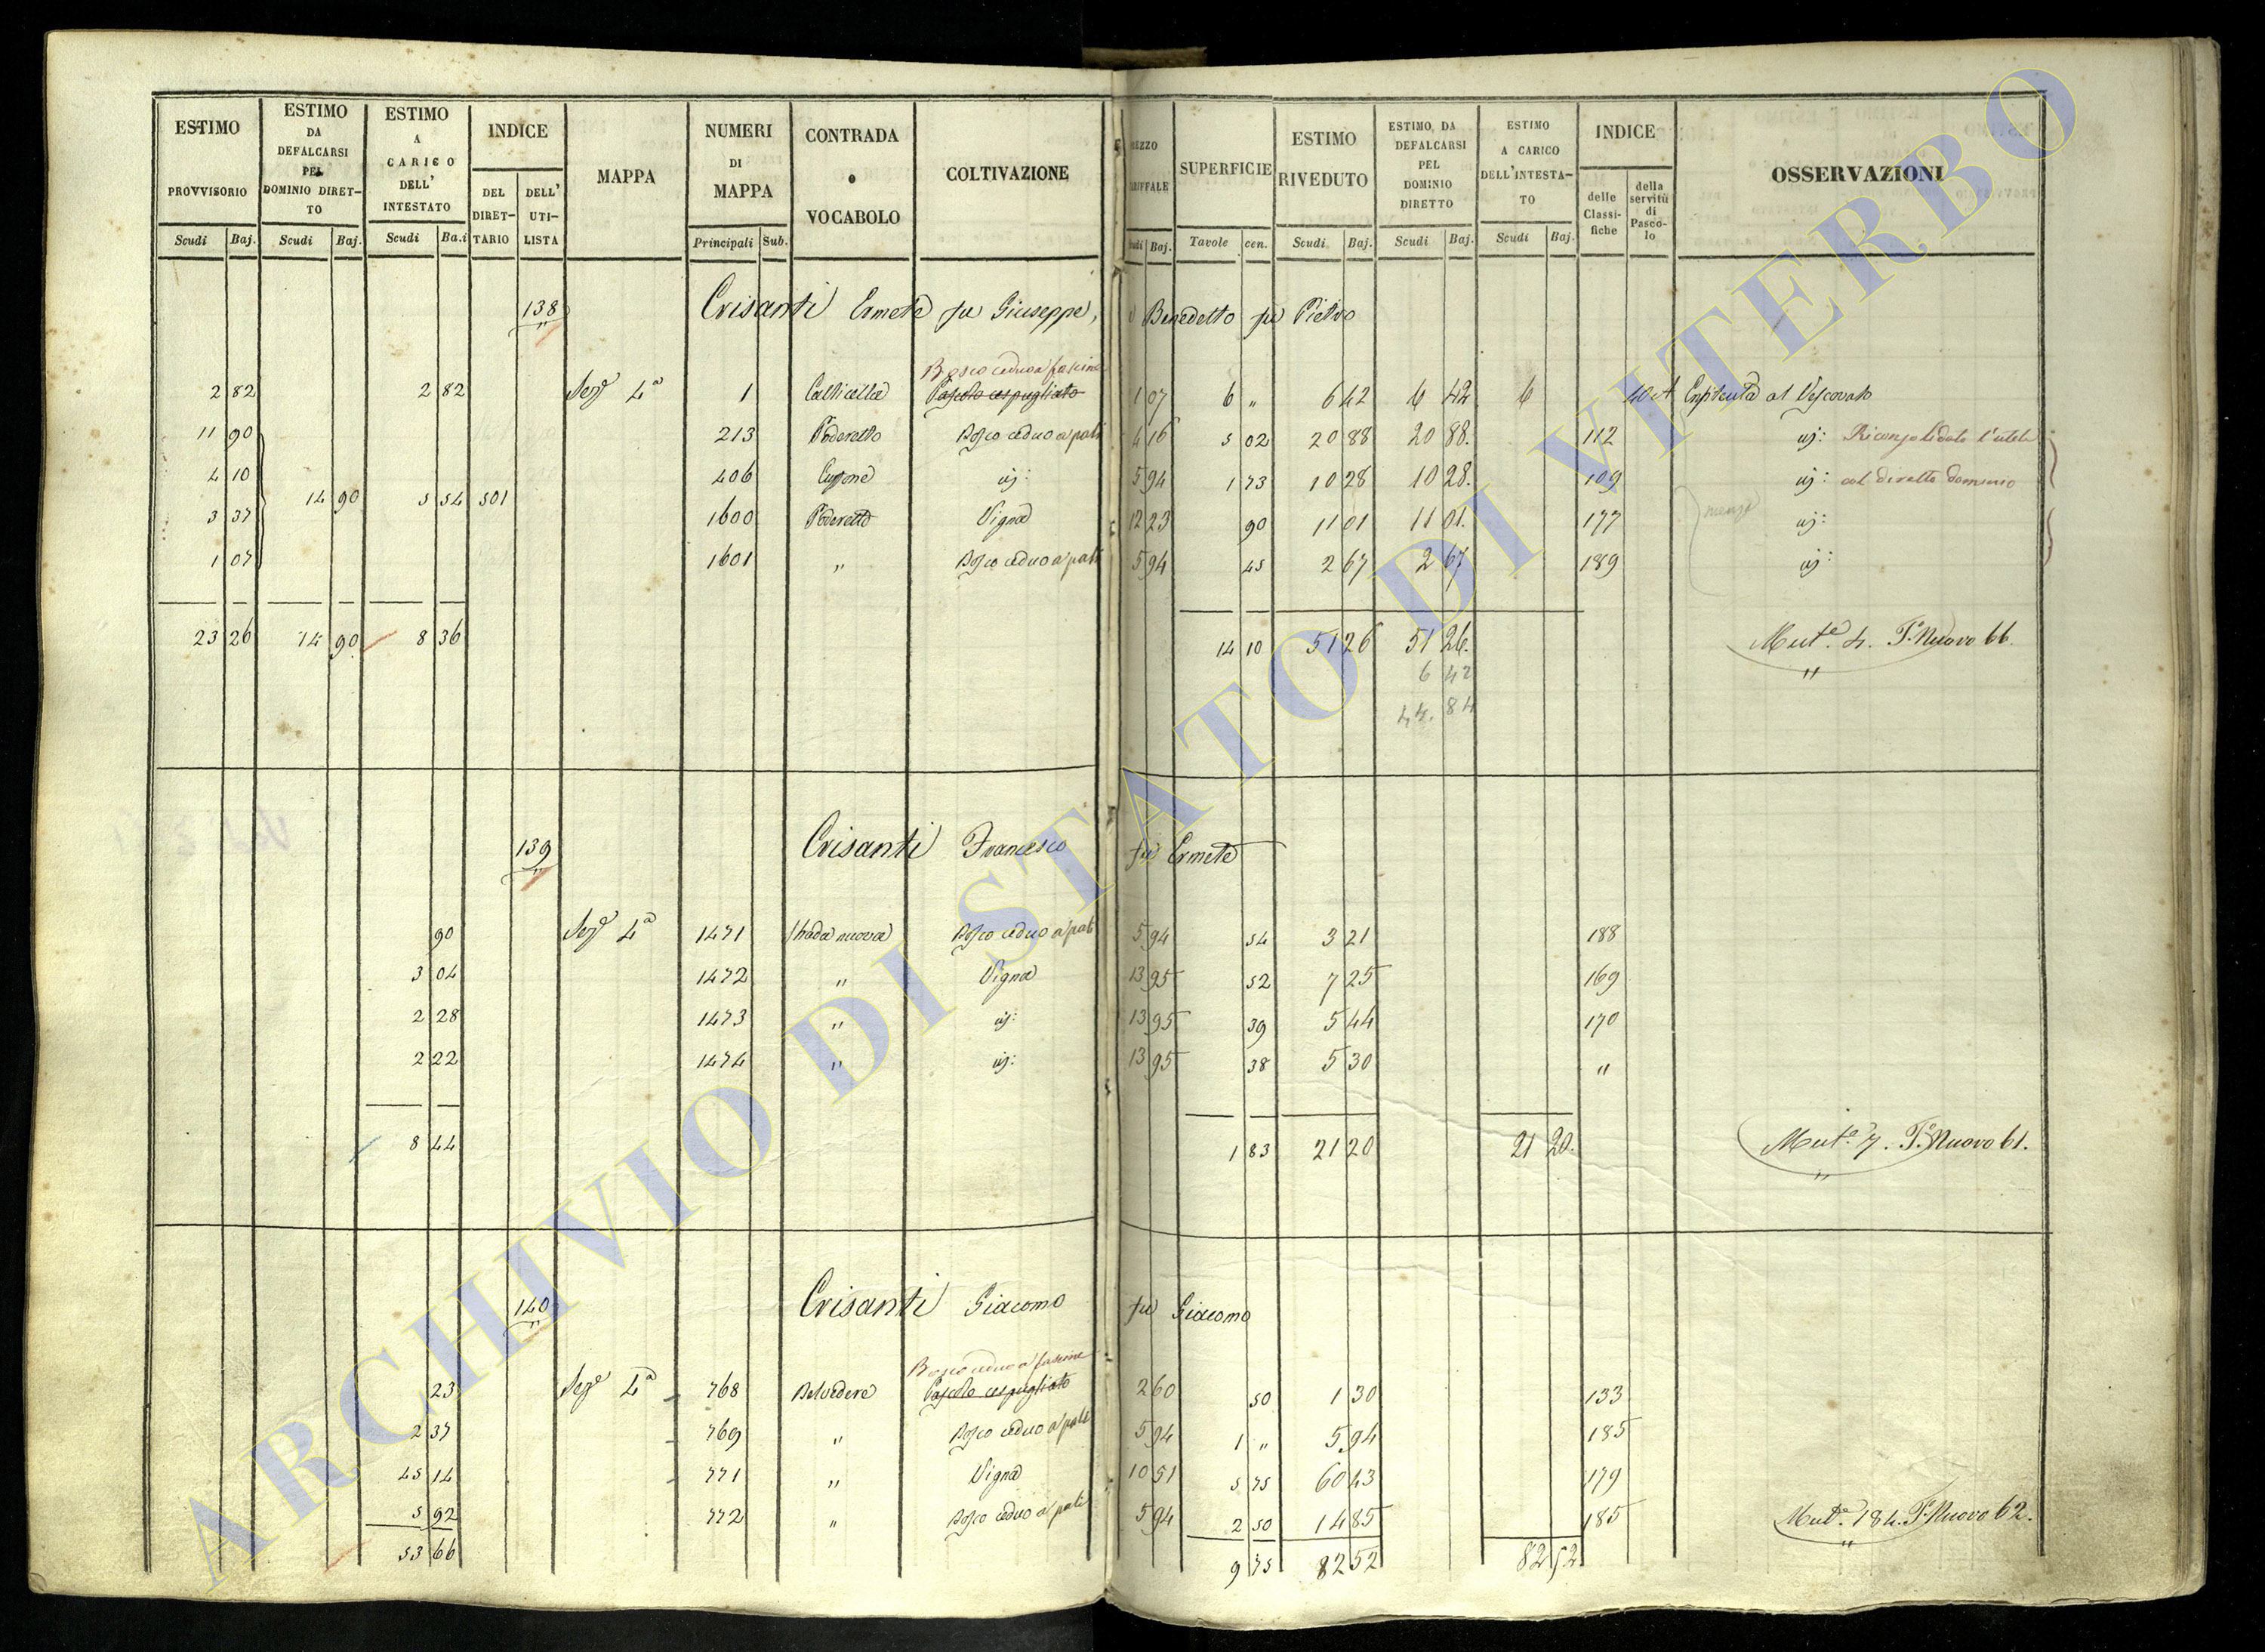 ESTIMO PROVVISORIO Scudi Baj.
ESTIMO DA DEFALCARSI PEL DOMINIO DIRETTO Scudi Baj.
ESTIMO A CARICO DELL' INTESTATO Scudi Ba.i
INDICE DEL DIRETTARIO DELL' UTILISTA
MAPPA
NUMERI DI MAPPA Principali Sub.
CONTRADA o VOCABOLO
COLTIVAZIONE
SUPERFICIE Tavole cen.
ESTIMO RIVEDUTO Scudi Baj.
ESTIMO DA DEFALCARSI PEL DOMINIO DIRETTO Scudi Baj.
ESTIMO A CARICO DELL'INTESTATO Scudi Baj.
INDICE delle Classifiche della servitù di Pascolo
OSSERVAZIONI
138 Crisanti Ermete fu Giuseppe, e Benedetto fu Pietro
Bosco ceduo a fascine
2 82 2 82 Sez.e 4a 1 Pascolo cespugliato 1 07 6 " 6 42 6 42 6 Enfiteuta al Vescovato
11 90 213 Poderetto Bosco ceduo a pali 4 16 5 02 20 88 20 88. 112 id: Riconsolidato l'utile
4 10 406 id: 5 94 1 73 10 28 10 28. 109 id: col diretto dominio
14 90 5 54 501
3 37 1600 Poderetto Vigna 12 23 90 11 01 11 01. 177 id:
mensa
1 07 1601 " Bosco ceduo a pali 5 94 45 2 67 2 67 189 id:
23 26 14 90 8 36 14 10 51 26 51 26. Mut.e 4. P. Nuovo 66.
6 42
44. 84
139 Crisanti Francesco fu Ermete
90 Sez.e 4a 1471 Strada nuova Bosco ceduo a pali 5 94 54 3 21 188
3 04 1472 " Vigna 13 95 52 7 25 169
2 28 1473 " id: 13 95 39 5 44 170
2 22 1474 " id: 13 95 38 5 30 "
8 44 1 83 21 20 21 20. Mut.e 7. P. Nuovo 61.
140 Crisanti Giacomo fu Giacomo
Bosco ceduo a fascine
23 Sez.e 4a 768 Belvedere Pascolo cespugliato 2 60 50 1 30 133
2 37 769 " Bosco ceduo a pali 5 94 1 " 5 94 185
45 14 771 " Vigna 10 51 5 75 60 43 179
5 92 772 " Bosco ceduo a pali 5 94 2 50 14 85 185 Mut.e 184. P. Nuovo 62.
53 66 9 75 82 52 82 52
ARCHIVIO DI STATO DI VITERBO